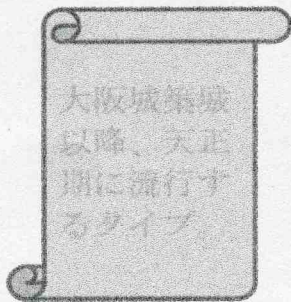 大阪城築城
以降、天正
期に流行す
るタイプ。